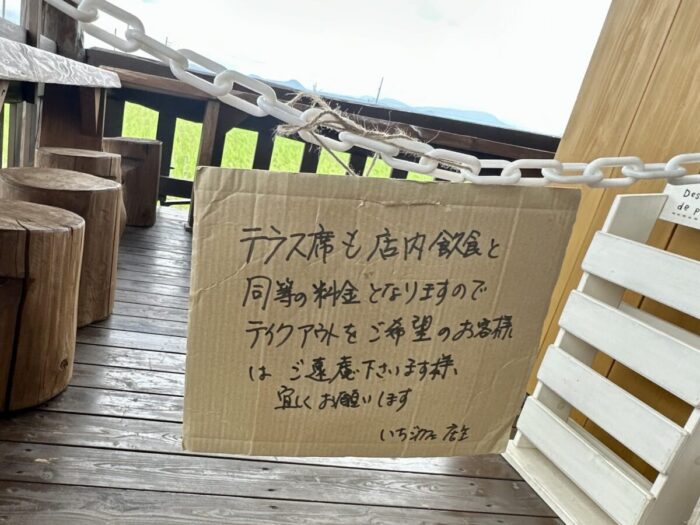 テラス席も店内飲食と
同等の料金となりますので
テイクアウトをご希望のお客様
は ご遠慮下さいます様、
宜しくお願いします
店主
Des
de p